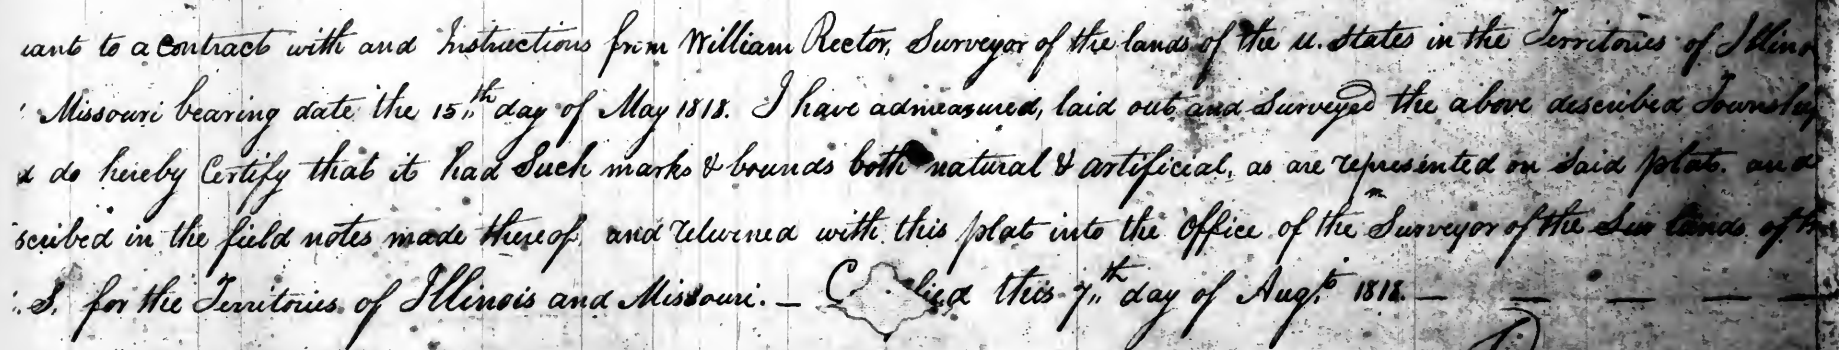 uant to a Contract with and Instructions from William Rector, Surveyor of the lands of the U. States in the Territories of Illino
Missouri bearing date the 15th day of May 1818. I have admeasured, laid out and Surveyed the above described Township
d do hereby Certify that it had Such marks & bounds both natural & artificial, as are represented on Said plat. and
scribed in the field notes made thereof and returned with this plat into the Office of the Surveyor of the lands of the
S. for the Territories of Illinois and Missouri. — this 7th day of Augt. 1818. — — — — —